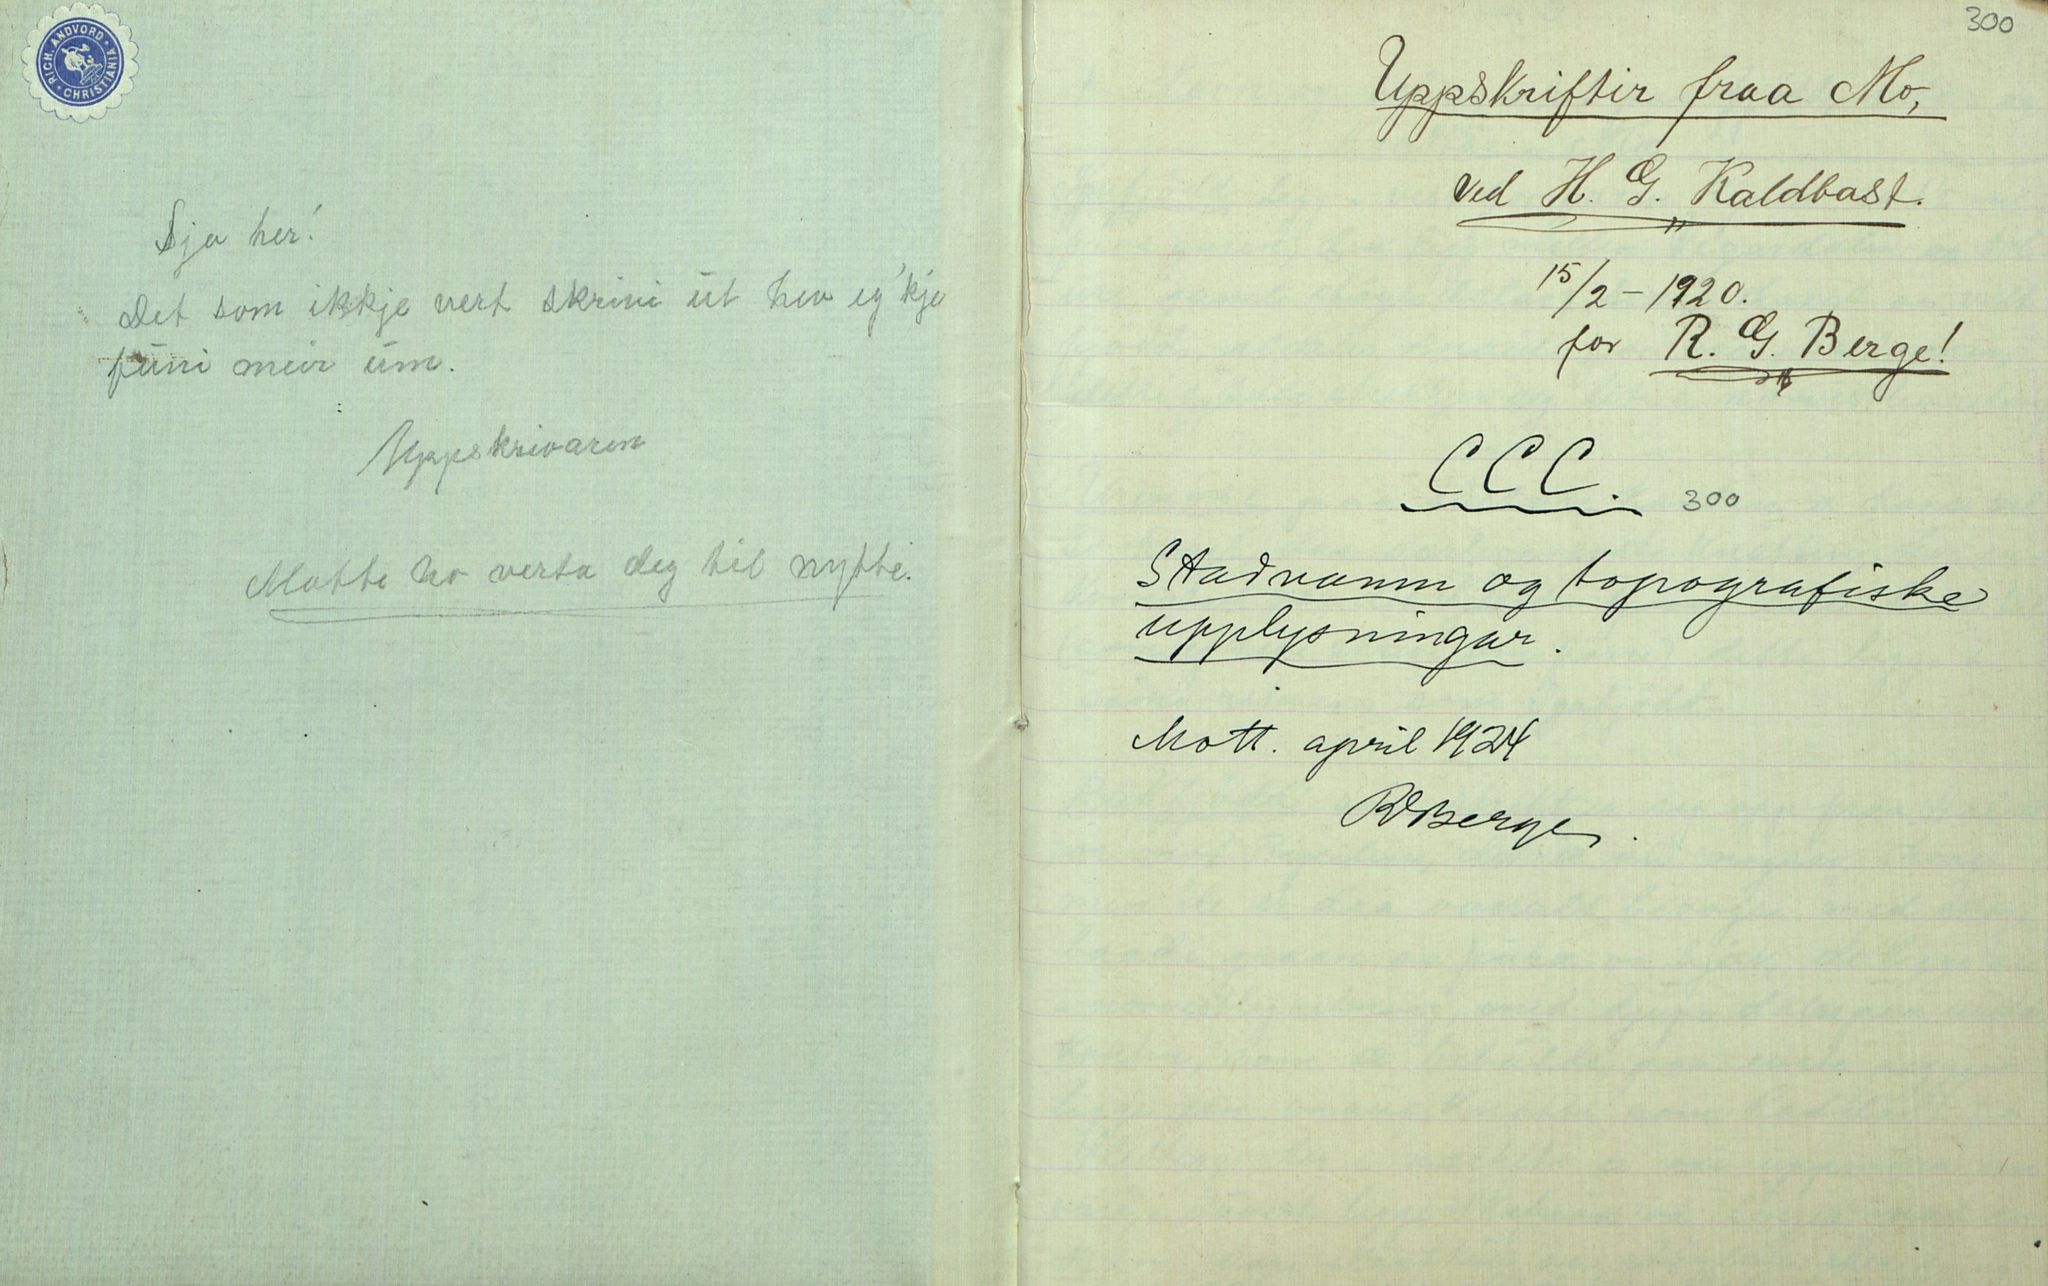 RICH. ANDVORD
CHRISTIANIA
Sja her!
Det som ikkje vert skrivi út hev eg 'kje
funi meir um.
Uppskrivaren
Matte no verta deg til nytte.
300
Uppskriftir fraa Mo,
ved H. G. Kaldbast.
15/2 - 1920.
for R. G. Berge!
CCC.
300
Stadnamn og topografiske
upplysningar.
Mott. april 1924
RBerge.